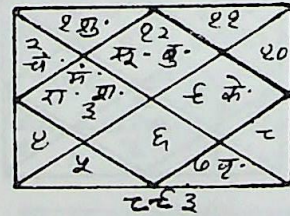 १ शु. १२ ११
२ चं. सू. बु. १०
मं.
रा. श. ३ ९ के.
४ ६ ८
५ ७ बृ.
८-९३